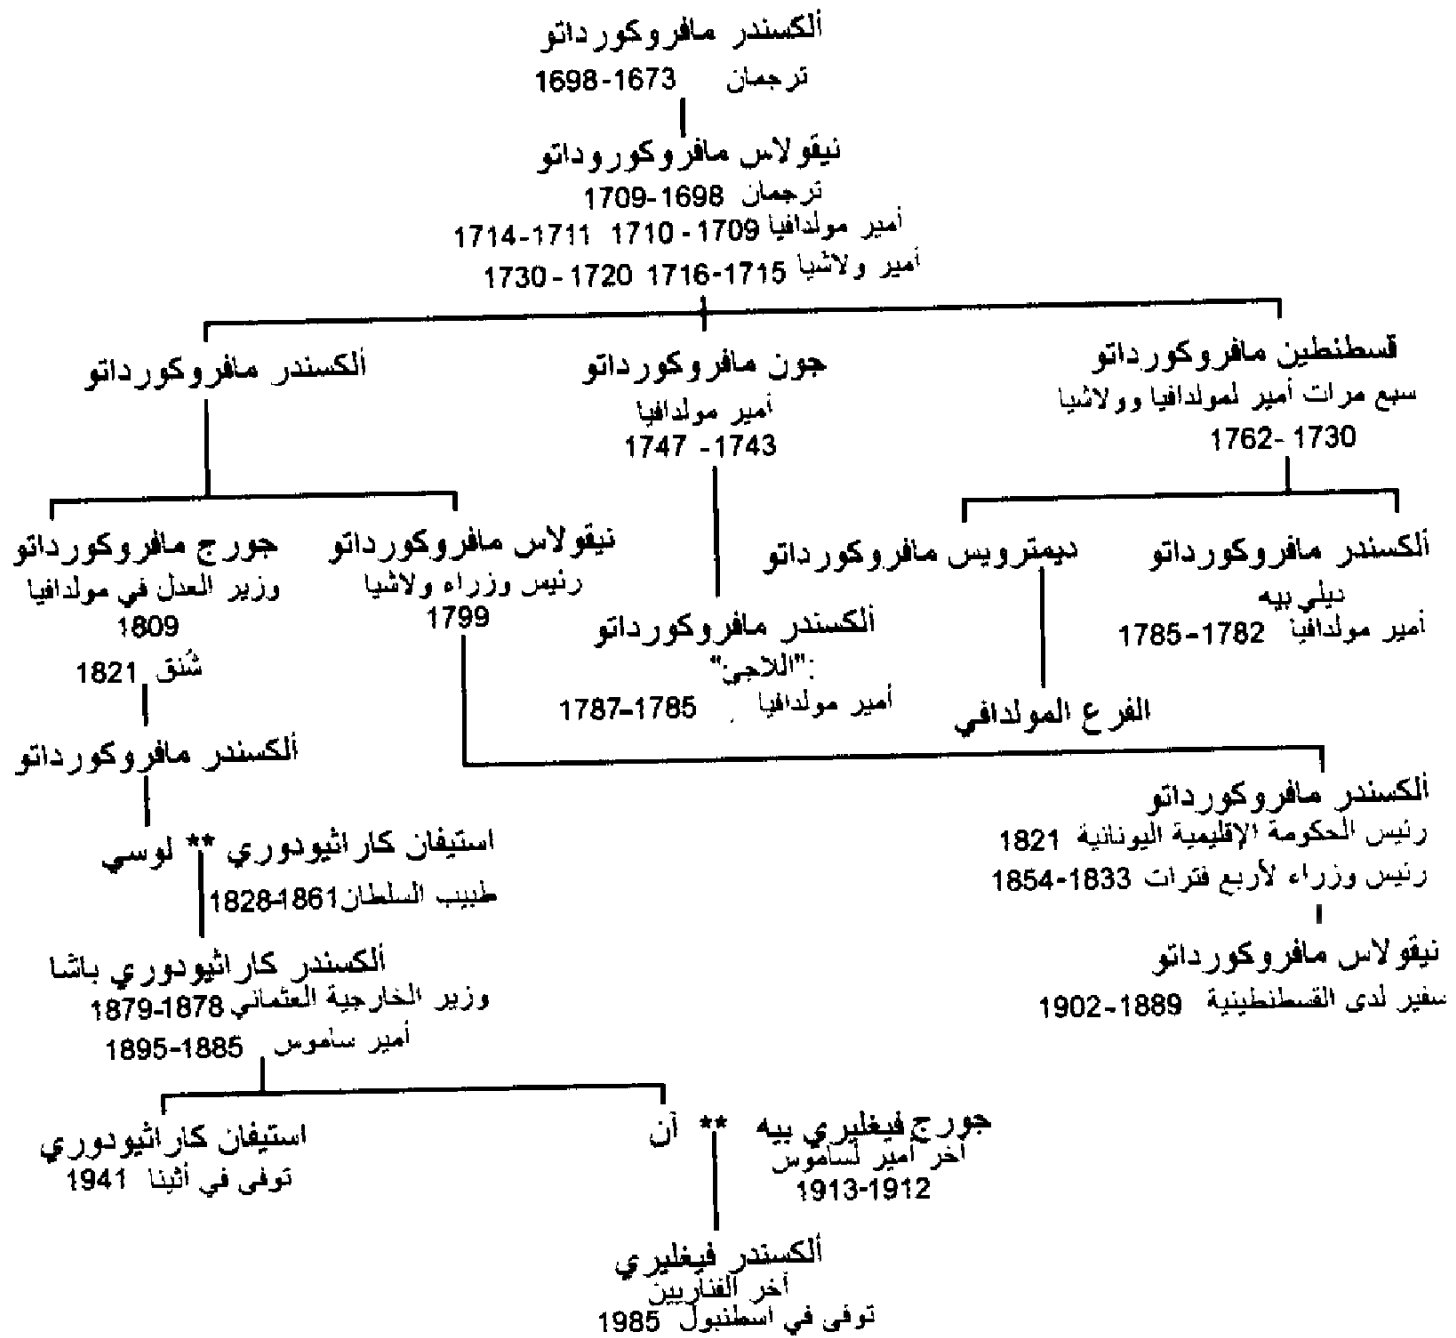 ألكسندر مافروكورداتو
ترجمان 1673-1698
نيقولاس مافروكوروداتو
ترجمان 1698-1709
أمير مولدافيا 1709-1710 1711-1714
أمير ولاشيا 1715-1716 1720-1730
قسطنطين مافروكورداتو
سبع مرات أمير لمولدافيا وولاشيا
1730-1762
جون مافروكورداتو
أمير مولدافيا
1743-1747
ألكسندر مافروكورداتو
ألكسندر مافروكورداتو
ديلي بيه
أمير مولدافيا 1782-1785
ديمترويس مافروكورداتو
الفرع المولدافي
ألكسندر مافروكورداتو
"اللاجئ":
أمير مولدافيا 1785-1787
نيقولاس مافروكورداتو
رئيس وزراء ولاشيا
1799
جورج مافروكورداتو
وزير العدل في مولدافيا
1809
شُنق 1821
ألكسندر مافروكورداتو
ألكسندر مافروكورداتو
رئيس الحكومة الإقليمية اليونانية 1821
رئيس وزراء لأربع فترات 1833-1854
نيقولاس مافروكورداتو
سفير لدى القسطنطينية 1889-1902
استيفان كاراثيودوري ** لوسي
طبيب السلطان 1861-1828
ألكسندر كاراثيودوري باشا
وزير الخارجية العثماني 1878-1879
أمير ساموس 1885-1895
جورج فيغليري بيه ** آن
آخر أمير لساموس
1912-1913
استيفان كاراثيودوري
توفى في أثينا 1941
ألكسندر فيغليري
آخر الفناريين
توفى في اسطنبول 1985